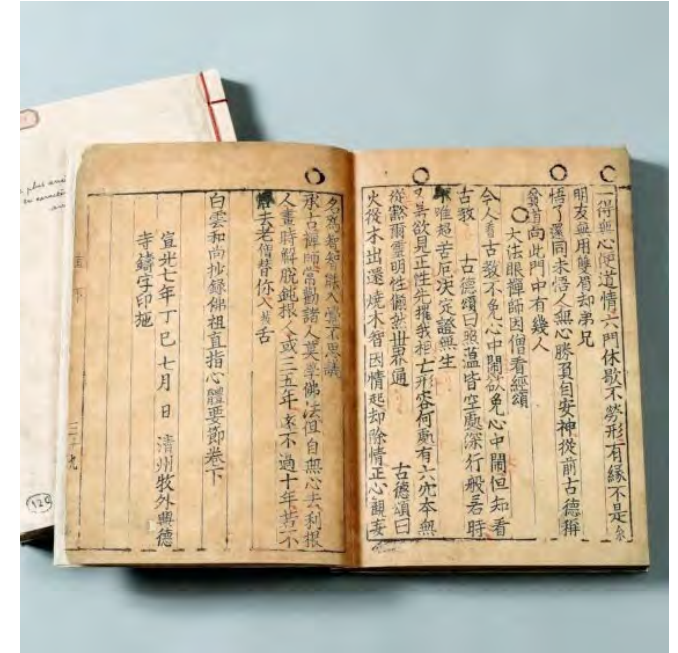 一得無心便道情六門休歇不勞形有緣不是余
朋友無用雙眉却弟兄
悟了還同未悟人無心勝負自安神從前古德稱
貧道向此門中有幾人
大法眼禪師因僧看經頌
今人看古教不免心中鬧欲免心中鬧但知看
古教 古德頌曰照薀皆空處深行般若時
唯超苦厄決定證無生
又 若欲見正性先摧我相亡形容何處有六宂本無
從豁爾靈明性儼然世界通 古德頌曰
火從木出還燒木智因情起却除情正心觀妄
夕爲智知能入當不思議
永古禪師常勸諸人莫學佛法但自無心去利根
人畫時解脫鈍根人或三五年 不過十年若不
去老僧替你入 舌
白雲和尚抄錄佛祖直指心體要節卷下
宣光七年丁巳七月 日 清州牧外興德
寺鑄字印施
下
三十九
plus anci
en caract
129